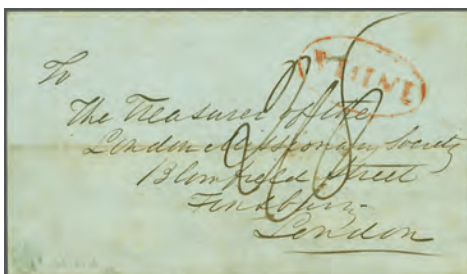 To
The Treasurer of the
London Missionary Society
Blomfield Street
Finsbury
London